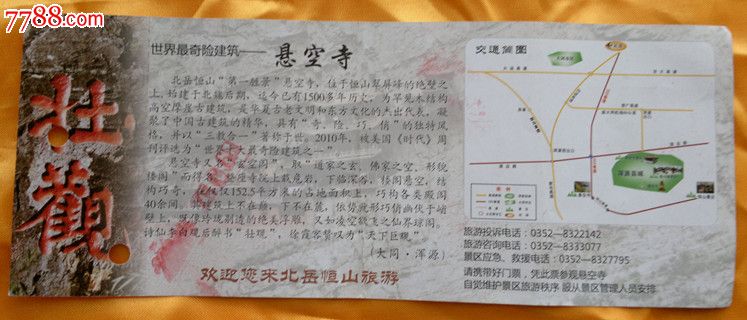 7788.com
壮觀
世界最奇险建筑——悬空寺
北岳恒山"第一胜景"悬空寺，位于恒山翠屏峰的绝壁之
上，始建于北魏后期，迄今已有1500多年历史，为罕见木结构
高空摩崖古建筑，是华夏古老文明和东方文化的杰出代表，凝
聚了中国古建筑的精华，具有"奇、险、巧、俏"的独特风
格，并以"三教合一"著称于世。2010年，被美国《时代》周
刊评选为"世界十大最奇险建筑之一"。
悬空寺又名"玄空阁"，取"道家之玄、佛家之空、形貌
楼阁"而得名。整座寺院上载危岩，下临深谷，楼阁悬空，结
构巧奇，在仅仅152.5平方米的占地面积上，巧构各类殿阁
40余间。其建筑上不在巅，下不在麓，依势就形巧俏幽伏于峭
壁之上，既像玲珑剔透的绝美浮雕，又如凌空欲飞之仙界琼阁。
诗仙李白观后醉书"壮观"，徐霞客赞叹为"天下巨观"。
（大同·浑源）
欢迎您来北岳恒山旅游
交通简图
图例
浑源县城
旅游投诉电话：0352—8322142
旅游咨询电话：0352—8333077
景区应急、救援电话：0352—8327795
请携带好门票，凭此票参观悬空寺
自觉维护景区旅游秩序 服从景区管理人员安排